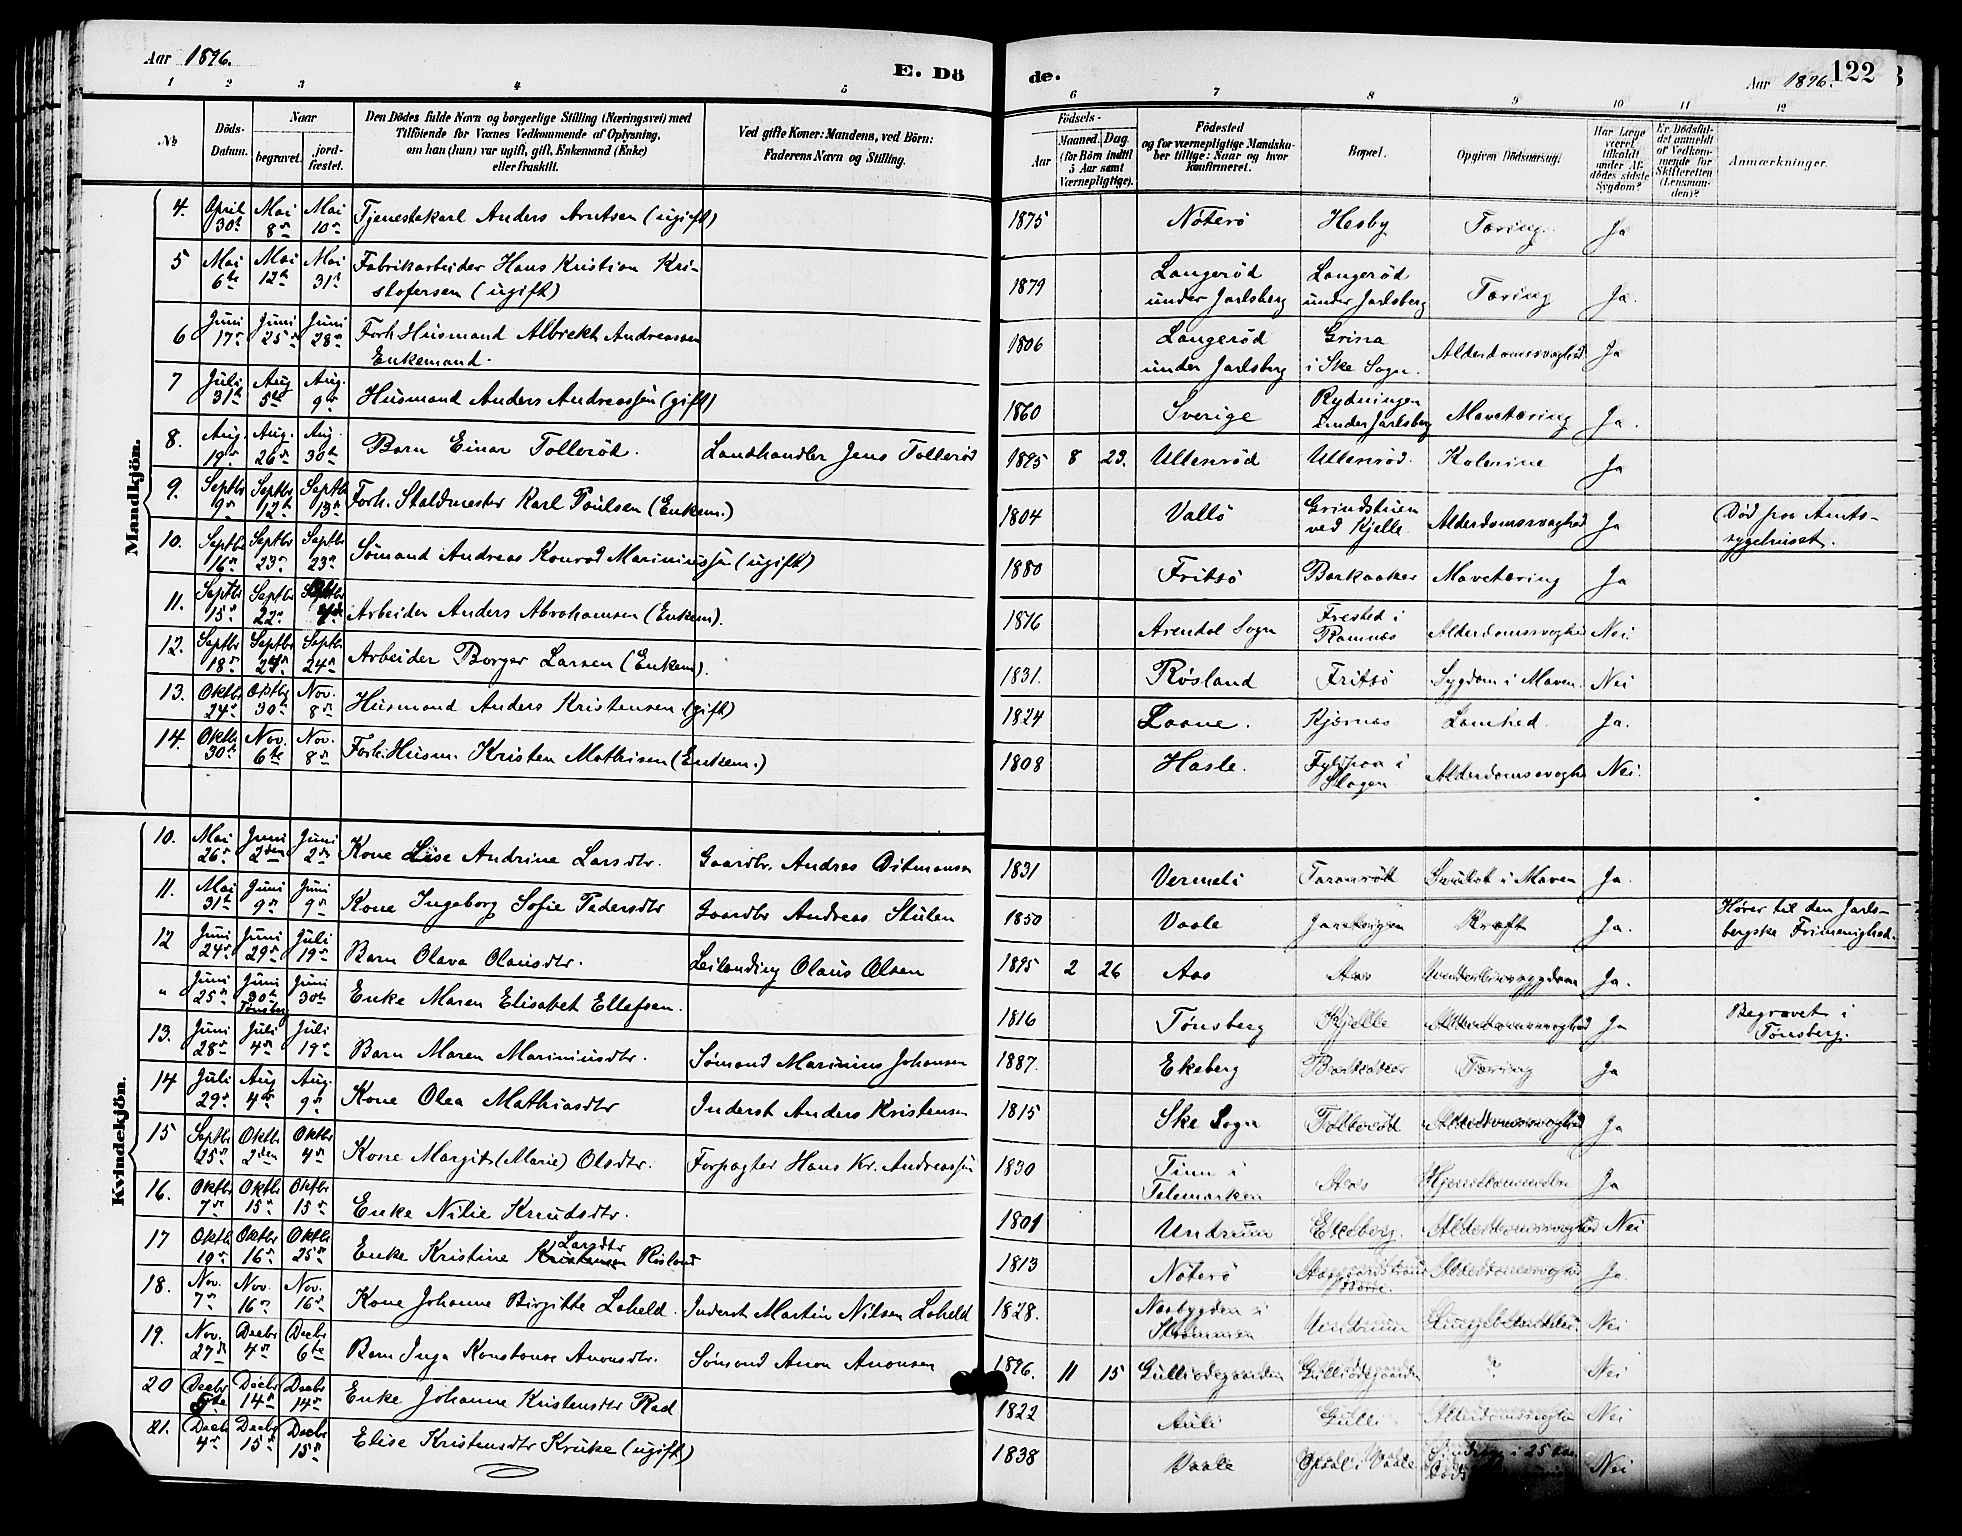 Aar 1896.
E. Dö
de.
Aar 1896.
122
1 2 3 4 5 6 7 8 9 10 11 12
№
Döds-Datum.
Naar
begravet.
jord-fæstet.
Den Dödes fulde Navn og borgerlige Stilling (Næringsvei) med
Tilföiende for Voxnes Vedkommende af Oplysning,
om han (hun) var ugift, gift, Enkemand (Enke)
eller fraskilt.
Ved gifte Koner: Mandens, ved Börn:
Faderens Navn og Stilling.
Födsels-
Aar
Maaned. Dag
(for Börn indtil
5 Aar samt
Værnepligtige).
Födested
og for værnepligtige Mandska-
ber tillige: Naar og hvor
konfirmeret.
Bopæl.
Opgiven Dödsaarsag.
Har Læge
været
tilkaldt
under Af-
dödes sidste
Sygdom?
Er Dödsfal-
det anmeldt
af Vedkom-
mende for
Skifteretten
(Lensman-
den)?
Anmærkninger.
Mandkjön.
4. April 30te Mai 8de Mai 10de Tjenestekarl Anders Arntsen (ugift) 1875 Nøterø Hesby Tæring. Ja
5 Mai 6te Mai 12te Mai 31te Fabrikarbeider Hans Kristian Kri-
stofersen (ugift) 1879 Langerød under Jarlsberg Langerød under Jarlsberg Tæring Ja.
6 Juni 17de Juni 25de Juni 28de Forh. Husmand Albrekt Andreassen
Enkemand. 1806 Langerød under Jarlsberg Grina i Ske Sogn. Alderdomssvaghed Ja
7 Juli 31te Aug 5te Aug. 9de Husmand Anders Andreassen (gift) 1860 Sverige Rydningen under Jarlsberg Mavetæring Ja.
8. Aug. 19de Aug. 26de Aug. 30te Barn Einar Tollerød. Landhandler Jens Tollerød 1895 8 23. Ullenrød Ullenrød. Kolerine Ja
9. Septbr 9de Septbr 12te Septbr 13de Forh. Staldmester Karl Poulsen (Enkem.) 1804 Vallø Grindstuen ved Kjelle Alderdomssvaghed Ja Død paa Amts-
sygehuset.
10. Septbr 16de Septbr 23de Septbr 23de Sømand Andreas Konrad Mariniussen (ugift) 1880 Fritsø Barkaaker Mavetæring Ja
11. Septbr 15de Septbr 22de Arbeider Anders Abrahamsen (Enkem). 1816 Arendal Sogn Frested i Ramnæs Alderdomssvaghed Nei
12. Septbr 18de Septbr 24de Septbr 24de Arbeider Borger Larsen (Enkem). 1831. Røsland Fritsø Sygdom i Maven. Nei
13. Oktbr 24de Oktbr 30te Nov. 8de Husmand Anders Kristensen (gift) 1824 Laane. Kjærnæs Lamhed. Ja.
14. Oktbr 30te Nov. 6te Nov. 8de Forh. Husm. Kristen Mathisen (Enkem.) 1808 Hasle. Fylpaa i Slagen Alderdomssvaghed Nei.
Kvindekjön.
10. Mai 26de Juni 2den Juni 2den Kone Lise Andrine Larsdtr. Gaardbr. Andreas Ditmansen 1831 Vermeli Taranrød Svulst i Maven Ja.
11. Mai 31te Juni 9de Juni 9de Kone Ingeborg Sofie Pedersdtr Gaardbr Andreas Stulen 1850 Vaale Kræft Ja. Hører til den Jarls-
bergske Frimenighed.
12 Juni 24de Juni 29de Juli 19de Barn Olava Olausdtr. Leilending Olaus Olsen 1895 2 26 Aas Aas Underlivssygdom Ja.
" Juni 25de Juni 30te Tønsberg Juni 30te Enke Maren Elisabet Ellefsen. 1816 Tønsberg Kjelle Alderdomssvaghed Ja Begravet i
Tønsberg.
13. Juni 28de Juli 4de Juli 19de Barn Maren Mariniusdtr. Sømand Marinius Johansen 1887. Ekeberg Barkaaker Tæring Ja
14 Juli 29de Aug 4de Aug. 9de Kone Olea Mathiasdtr Inderst Anders Kristensen 1815 Ske Sogn Tollerød Alderdomssvaghed Ja
15 Septbr 25de Oktbr 2den Oktbr 4de Kone Margit (Marie) Olsdtr. Forpagter Hans Kr. Andreassen 1830 Tinn i Telemarken Aas Hjernebetændelse Ja
16. Oktbr 7de Oktbr 15de Oktbr 15de Enke Nilie Knudsdtr. 1801 Undrum Ekeberg. Alderdomssvaghed Nei
17 Oktbr 19de Oktbr 16de Oktbr 25de Enke Kristine Larsdtr Kristensen Røsland 1813 Nøterø Aasgaardstrand i Borre. Alderdomssvaghed Ja.
18. Nov. 7de Nov. 16de Nov. 16de Kone Johanne Birgitte Løheld. Inderst Martin Nilsen Løheld 1828. Næsbygden i Strømmen Undrum Lungebetændelse. Nei
19. Nov. 27de Decbr 4de Decbr 6te Barn Inga Konstanse Aronsdtr. Sømand Aron Aronsen 1896. 11 15 Gulliødegaarden Gulliødegaarden ? Nei
20 Decbr 5te Decbr 14de Decbr 14de Enke Johanne Kristensdtr Rød 1822 Auli Gulli Alderdomssvaghed Nei
21. Decbr 4de Decbr 15de Decbr 15de Elise Kristensdtr Kruke (ugift) 1838 Vaale Opsal i Vaale i 25 Aar Nei